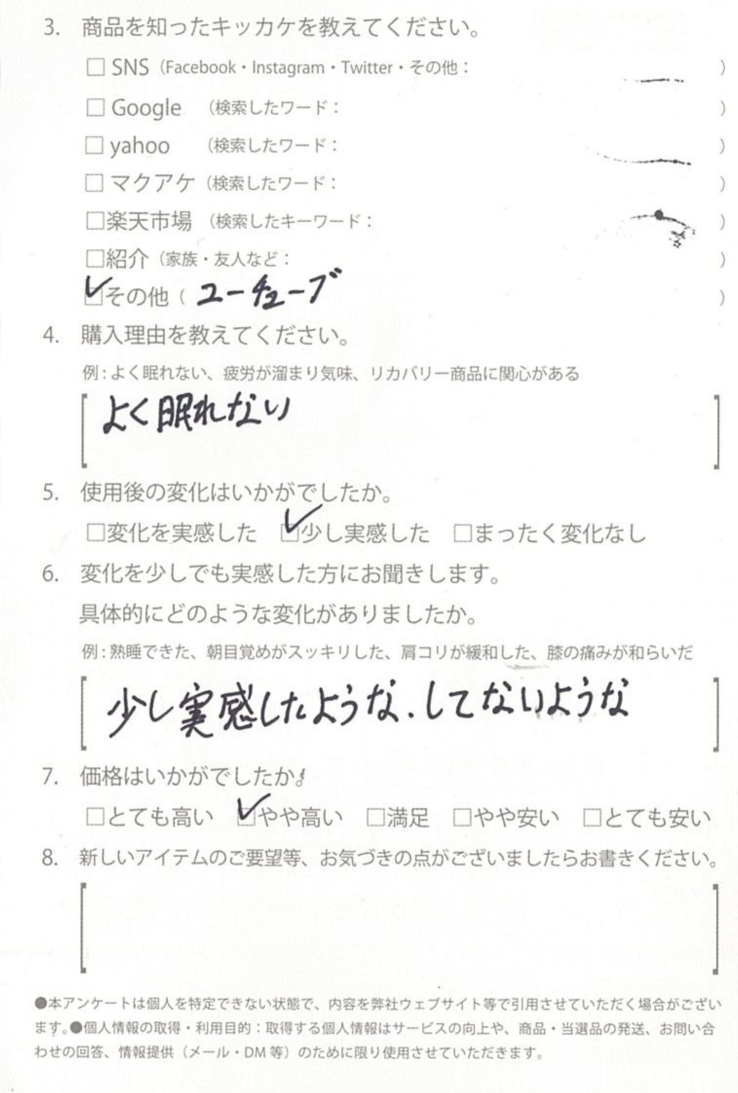 3. 商品を知ったキッカケを教えてください。
□ SNS（Facebook・Instagram・Twitter・その他： ）
□ Google （検索したワード： ）
□ yahoo （検索したワード： ）
□ マクアケ（検索したワード： ）
□楽天市場（検索したキーワード： ）
□紹介（家族・友人など： ）
☑その他（ ユーチューブ ）
4. 購入理由を教えてください。
例：よく眠れない、疲労が溜まり気味、リカバリー商品に関心がある
よく眠れない
5. 使用後の変化はいかがでしたか。
□変化を実感した ☑少し実感した □まったく変化なし
6. 変化を少しでも実感した方にお聞きします。
具体的にどのような変化がありましたか。
例：熟睡できた、朝目覚めがスッキリした、肩コリが緩和した、膝の痛みが和らいだ
少し実感したような、してないような
7. 価格はいかがでしたか。
□とても高い ☑やや高い □満足 □やや安い □とても安い
8. 新しいアイテムのご要望等、お気づきの点がございましたらお書きください。
●本アンケートは個人を特定できない状態で、内容を弊社ウェブサイト等で引用させていただく場合がござい
ます。●個人情報の取得・利用目的：取得する個人情報はサービスの向上や、商品・当選品の発送、お問い合
わせの回答、情報提供（メール・DM 等）のために限り使用させていただきます。